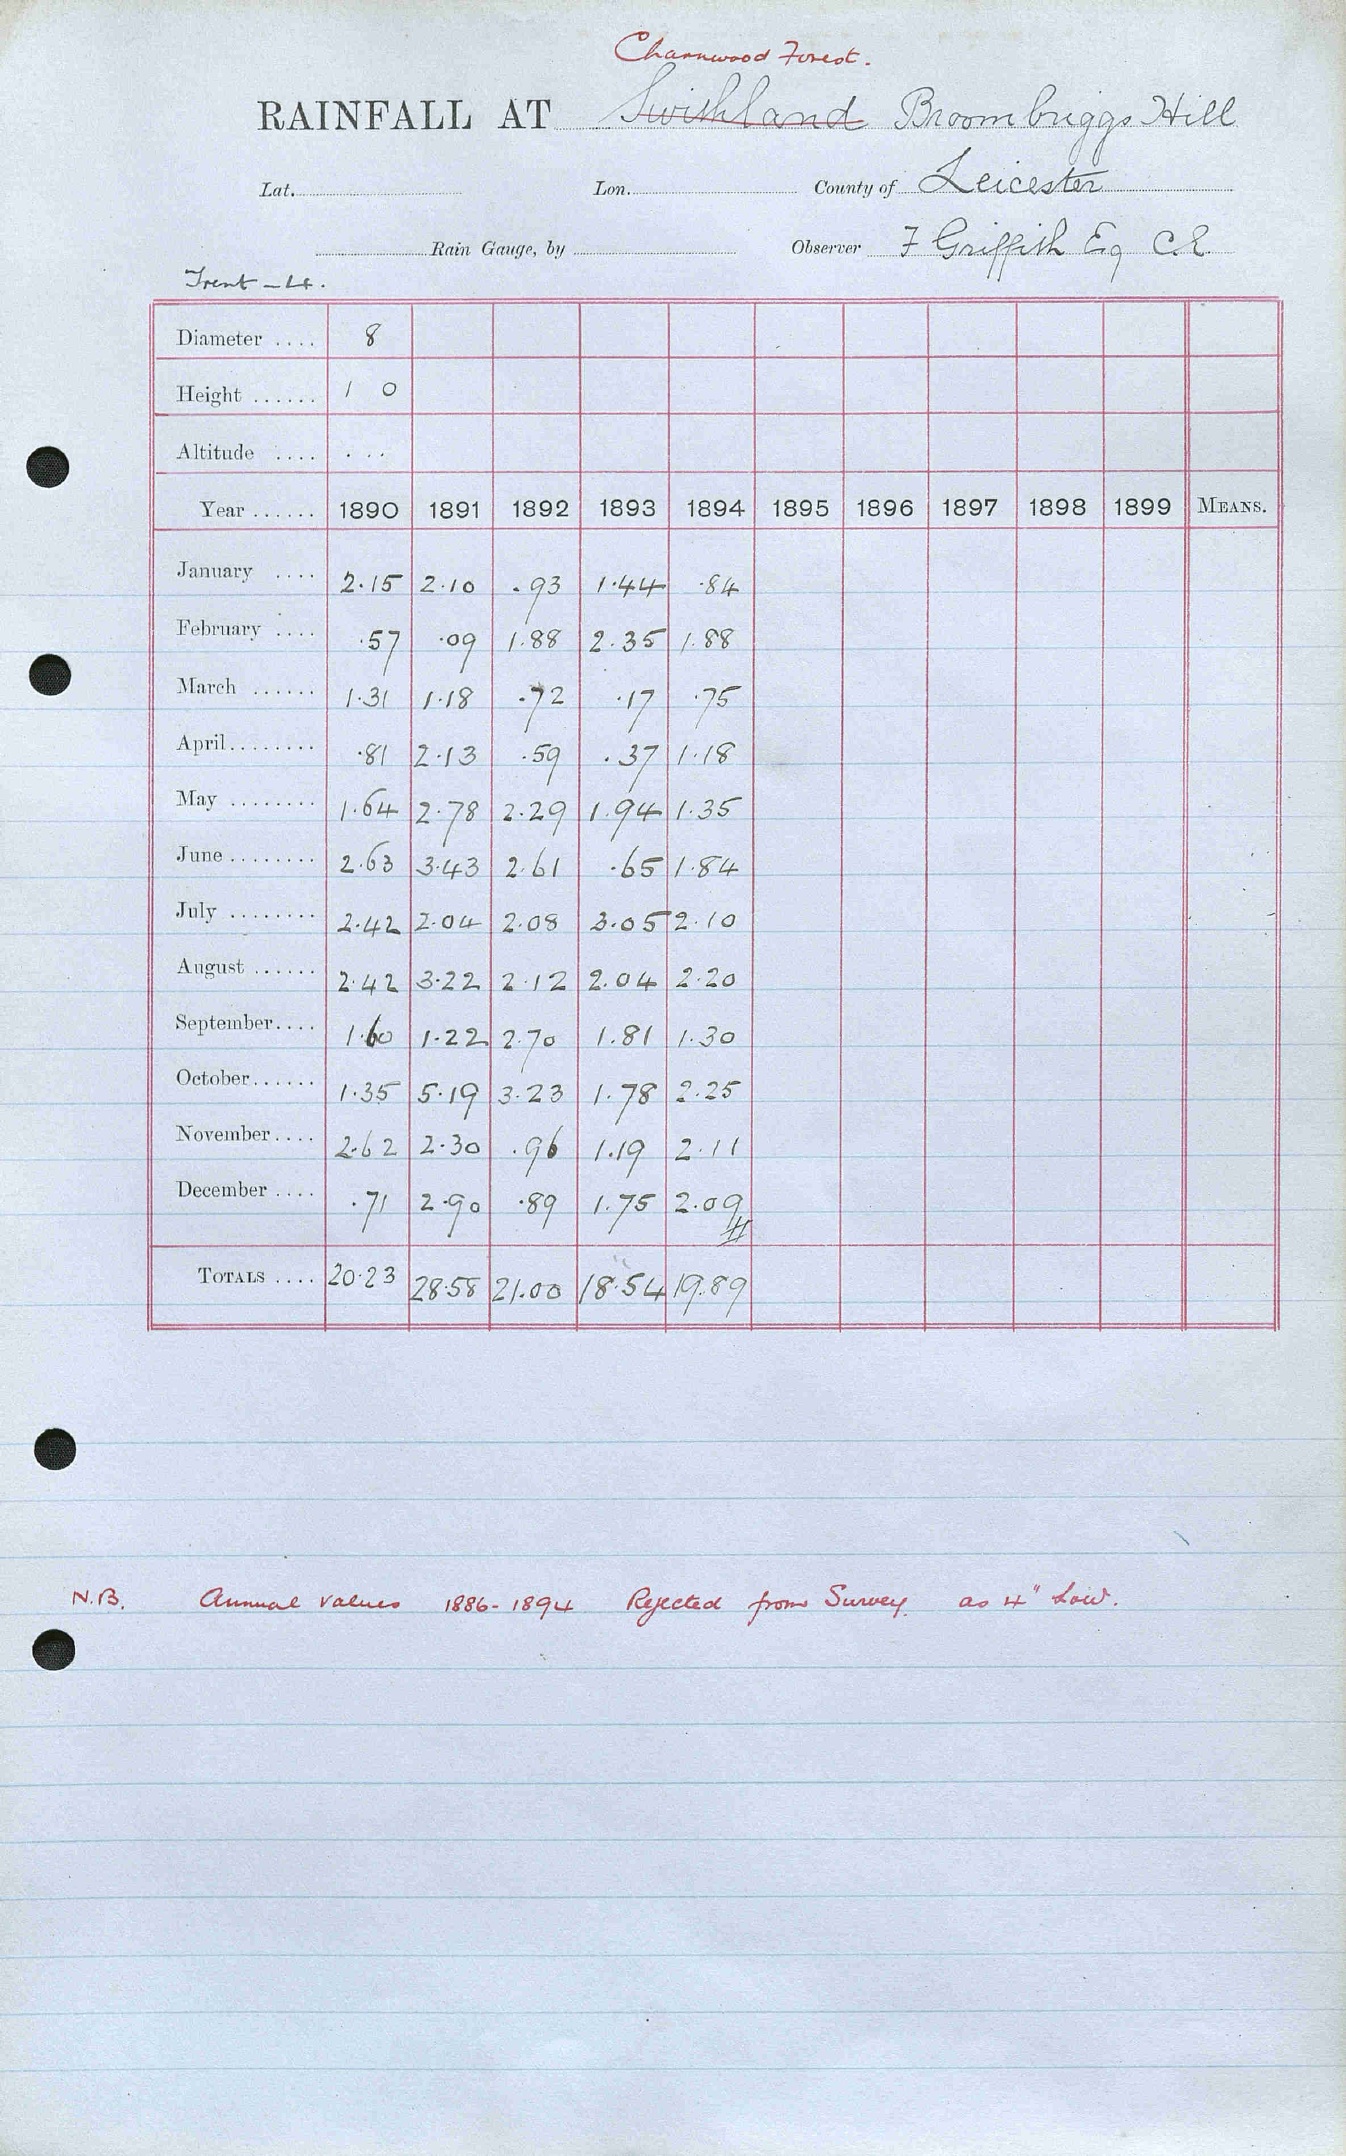 Charnwood Forest.
RAINFALL AT Swithland Broombriggs Hill
Lat. Lon. County of Leicester
Rain Gauge, by Observer F Griffith Esq C.E.
Trent - L4.
Diameter .... 8
Height ...... 1 0
Altitude .... . . .
Year ...... 1890 1891 1892 1893 1894 1895 1896 1897 1898 1899 MEANS.
January .... 2.15 2.10 .93 1.44 .84
February .... .57 .09 1.88 2.35 1.88
March ...... 1.31 1.18 .72 .17 .75
April........ .81 2.13 .59 .37 1.18
May ........ 1.64 2.78 2.29 1.94 1.35
June ........ 2.63 3.43 2.61 .65 1.84
July ........ 2.42 2.04 2.08 3.05 2.10
August ...... 2.42 3.22 2.12 2.04 2.20
September.... 1.60 1.22 2.70 1.81 1.30
October...... 1.35 5.19 3.23 1.78 2.25
November.... 2.62 2.30 .96 1.19 2.11
December .... .71 2.90 .89 1.75 2.09
TOTALS .... 20.23 28.58 21.00 18.54 19.89
N.B. Annual values 1886-1894 Rejected from Survey as 4" Low.